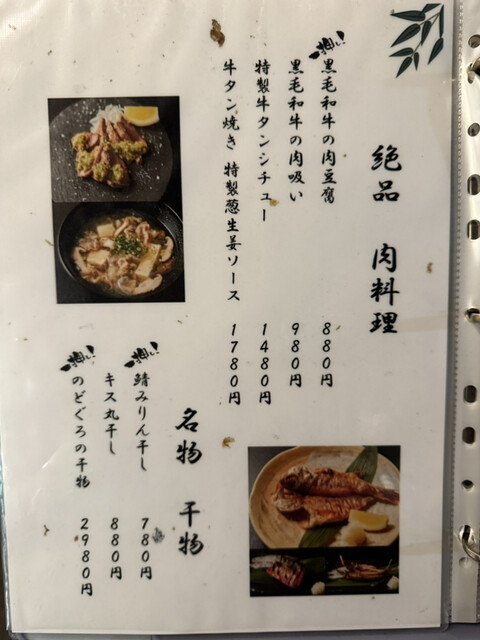 絶品 肉料理
一押し!
黒毛和牛の肉豆腐 880円
黒毛和牛の肉吸い 980円
特製牛タンシチュー 1480円
牛タン焼き 特製葱生姜ソース 1780円
名物 干物
一押し!
鯖みりん干し 780円
キス丸干し 880円
一押し!
のどぐろの干物 2980円